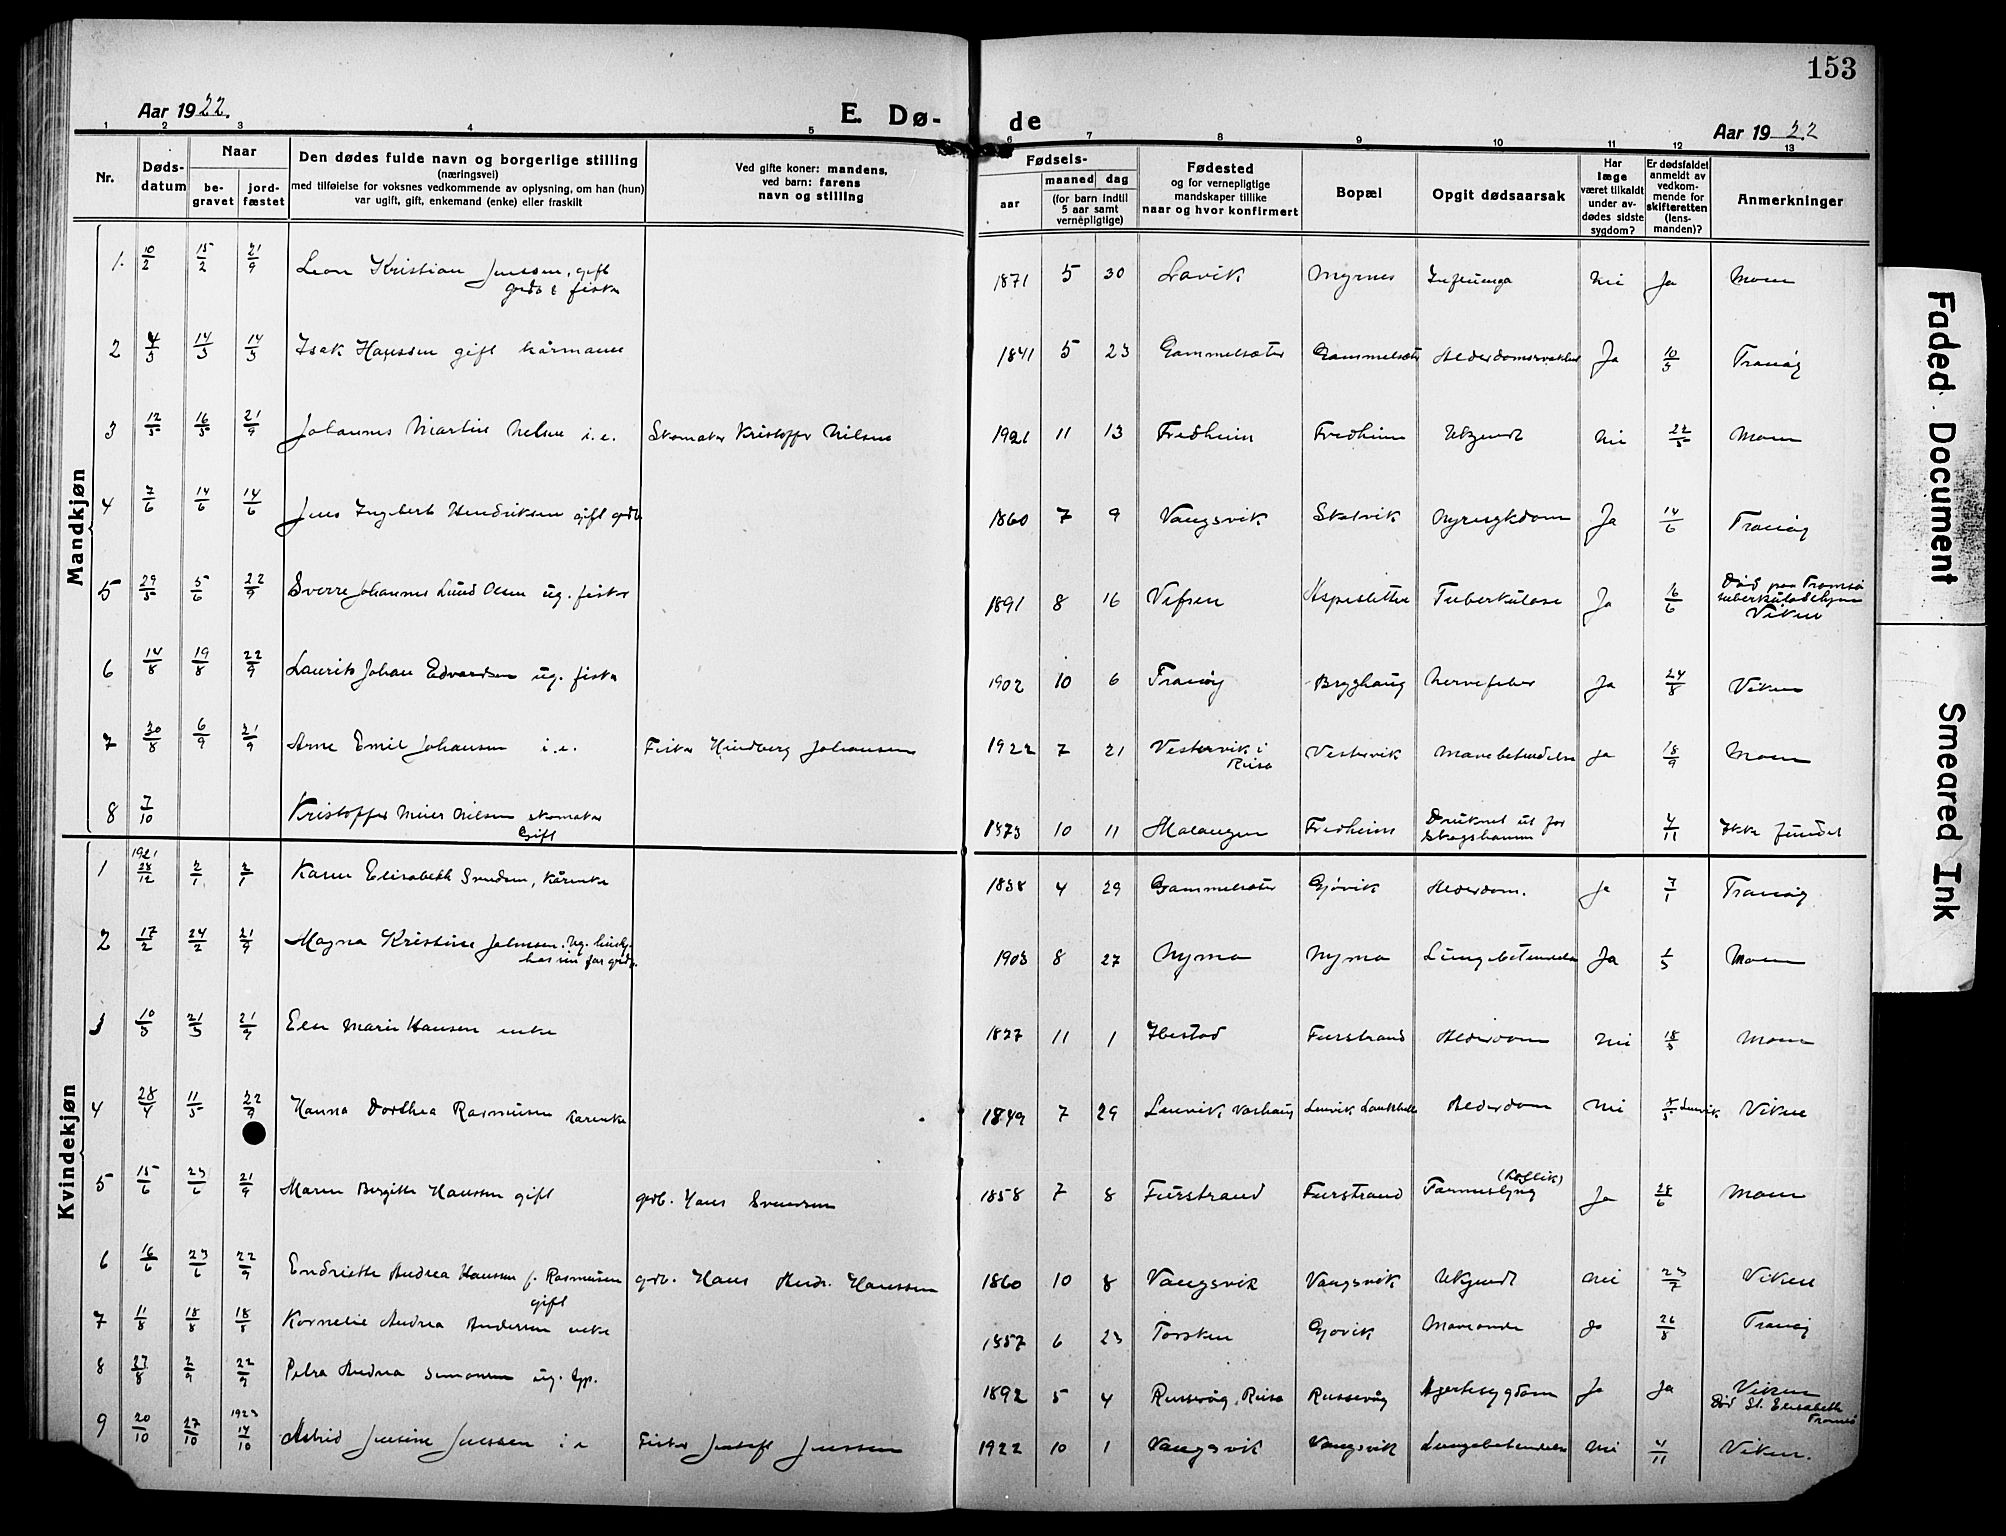 153
Aar 1922.
E. Dø-
de
Aar 1922
1 2 3 4 5 6 7 8 9 10 11 12 13
Nr.
Døds-
datum
Naar
be-
gravet
jord-
fæstet
Den dødes fulde navn og borgerlige stilling
(næringsvei)
med tilføielse for voksnes vedkommende av oplysning, om han (hun)
var ugift, gift, enkemand (enke) eller fraskilt
Ved gifte koner: mandens,
ved barn: farens
navn og stilling
Fødsels-
aar
maaned
dag
(for barn indtil
5 aar samt
vernepligtige)
Fødested
og for vernepligtige
mandskaper tillike
naar og hvor konfirmert
Bopæl
Opgit dødsaarsak
Har
læge
været tilkaldt
under av-
dødes sidste
sygdom?
Er dødsfaldet
anmeldt av
vedkom-
mende for
skifteretten
(lens-
manden)?
Anmerkninger
Mandkjøn
1. 10/2 15/2 21/9 Leon Kristian Jenssen, gift 1871 5 30 Lavik Myrnes Influenga Nei Ja Moen
grdb & fisker
2 4/3 14/3 14/3 Isak Hanssen gift kårmann 1841 5 23 Gammelsæter Gammelsæter Alderdomssvakhet Ja 10/3 Tranøy
3 12/5 16/5 21/9 Johannes Martin Nilsen i.e. Skomaker Kristoffer Nilsen 1921 11 13 Fredheim Fredheim Ukjendt Nei 22/5 Moen
4 7/6 14/6 14/6 Jens Ingebert Hendriksen gift grdb 1860 7 9 Vangsvik Skatvik Nyresykdom Ja 14/6 Tranøy
5 29/5 5/6 22/9 Sverre Johannes Lund Olsen ug. fisker 1891 8 16 Vefsen Aspesletten Tuberkulose Ja 16/6 Død paa Tromsø
tuberkulosehjem
Viken
6 14/8 19/8 22/9 Laurits Johan Edvardsen ug. fisker 1902 10 6 Tranøy Bryghaug Nervefeber Ja 24/8 Viken
7 30/8 6/9 21/9 Arne Emil Johansen i.e. Fisker Hindberg Johansen 1922 7 21 Vestervik i Vestervik Mavebetendelse Ja 18/9 Moen
Reisa
8 7/10 Kristoffer Meier Nilsen skomaker 1873 10 11 Malangen Fredheim Druknet ut for 4/11 Ikke fundet
Gift
Skogshamn
Kvindekjøn
1921
1 28/12 2/1 2/1 Karen Elisabeth Svendsen, kårenke 1838 4 29 Gammelsæter Gjøvik Alderdom. Ja 7/1 Tranøy
2 17/2 24/2 21/9 Magna Kristine Johnsen. Ug. 1903 8 27 Nymo Nymo Lungebetendelse Ja 1/3 Moen
3 10/3 21/3 21/9 Else Marie Hansen enke 1827 11 1 Ibestad Furstrand Alderdom Nei 18/3 Moen
4 28/4 11/5 22/9 Hanna Dorthea Rasmusen kårenke 1849 7 29 Lenvik Lenvik Alderdom Nei 8/5 Lenvik Viken
5 15/6 23/6 21/9 Maren Bergitte Hanssen gift grdb. Hans Svendsen 1858 7 8 Furstrand Furstrand Tarmslyng Ja 28/6 Moen
6 16/6 23/6 22/9 Endriette Andrea Hanssen f. Rasmusen grdb. Hans Andr. Hanssen 1860 10 8 Vangsvik Vangsvik Ukjendt Nei 23/7 Viken
gift
7 11/8 18/8 18/8 Kornelie Andrea Andersen enke 1857 6 23 Torsken Gjøvik Maveonde Ja 26/8 Tranøy
8 27/8 2/9 22/9 Petra Andrea Simonsen ug. 1892 5 4 Russevåg, Reisa Russevåg Hjertesygdom Ja Ja Viken
Død St. Elisabeth
Tromsø
1923
9 20/10 27/10 14/10 Astrid Jensine Jenssen i.e Fisker Josef Jenssen 1922 10 1 Vangsvik Vangsvik Lungebetendelse Nei 4/11 Viken.
Faded Document
Smeared Ink